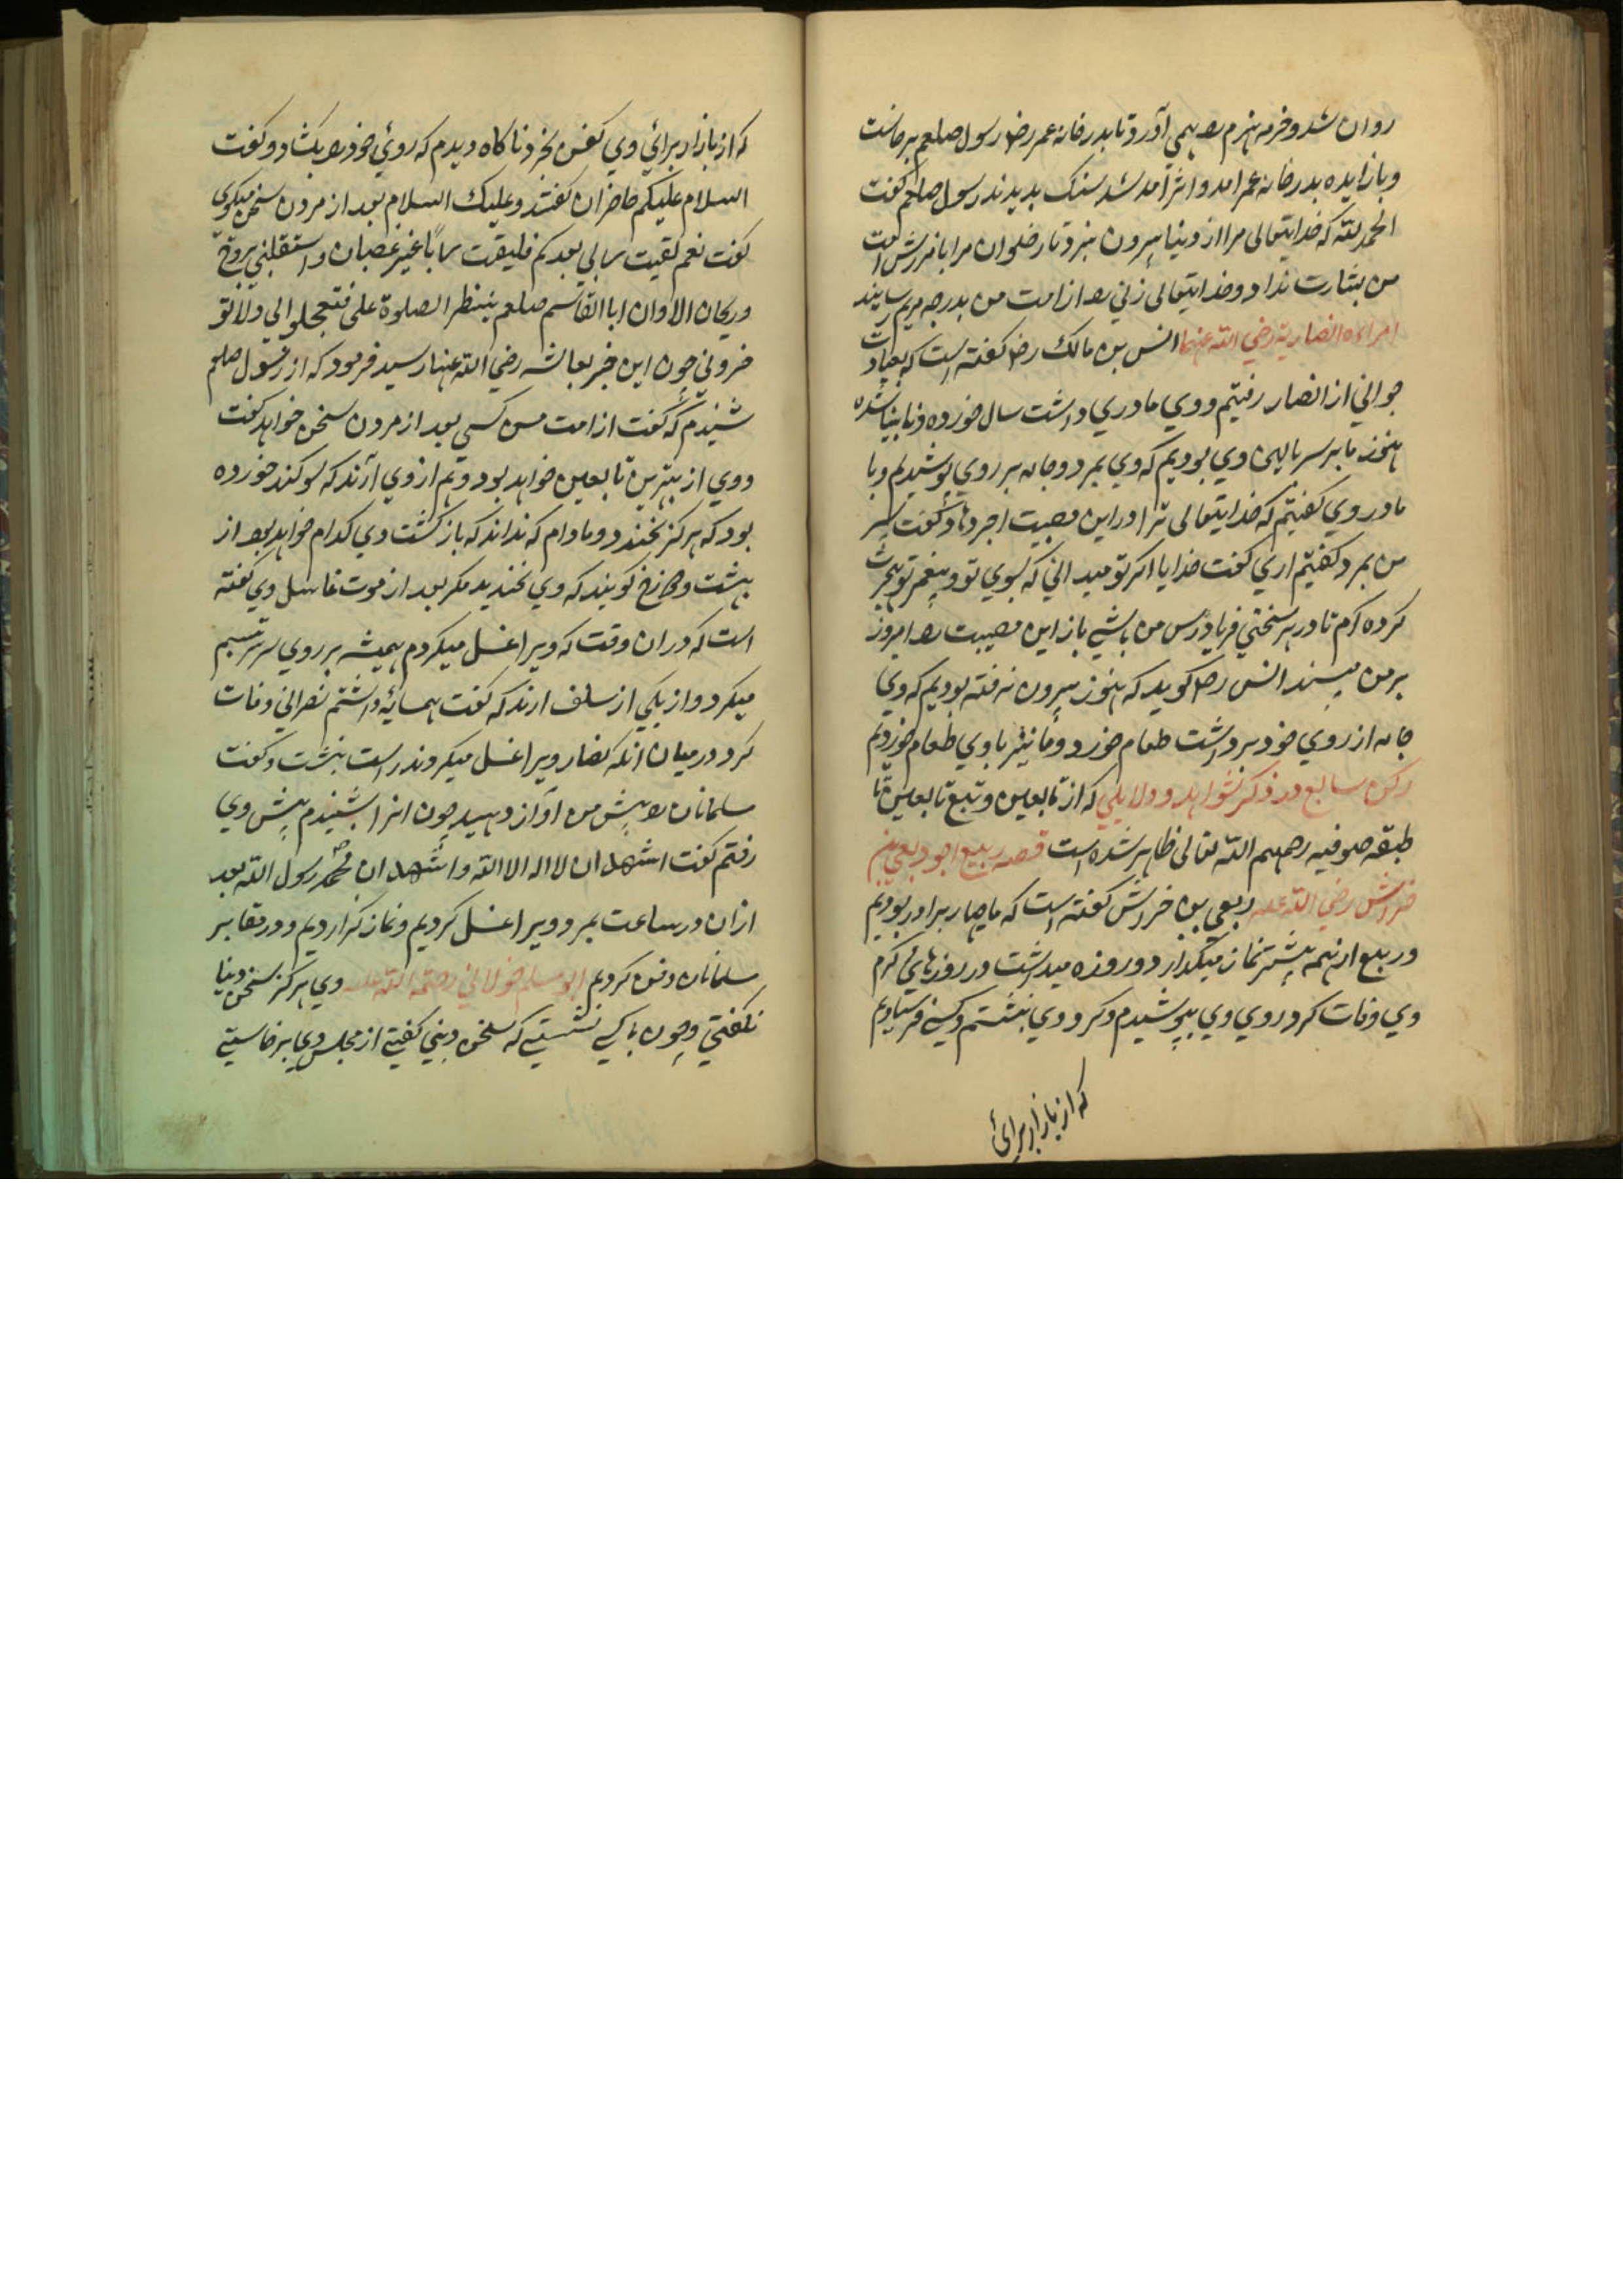 روان شد و خرمه هیزم را همی آورد تا بدر خانه عمر رضـ رسول صلعم برخاست
و باز ایده بدر خانه عمر امد و اثر آمد شد سنک بدیدند رسول صلعم کفت
الحمد لله که خدایتعالی مرا از دنیا بیرون نبرد تا رضوان مرا بامرزش امت
من بشارت نداد و خدایتعالی زنی را از امت من بدرجه مریم رسانید
امراءه انصاریه رضي الله عنها انس بن مالک رضـ کفته است که بعیادت
جواني از انصار رفتیم و وي مادري داشت سال خورده و نابینا شده
هنوز ما بر سر بالین وي بودیم که وي بمرد و جامه بر روي پوشیدیم و با
مادر وي کفتیم که خدایتعالی ترا در این مصیبت اجر دهاد کفت پسر
من بمرد کفتیم اري کفت خدایا اکر تو میداني که بسوي تو و پیغمبر تو هجرت
کرده ام تا در هر سختي فریاد رس من باشي باز این مصیبت را امروز
بر من مپسند انس رضـ کوید که هنوز بیرون نرفته بودیم که وي
جامه از روي خود برداشت طعام خورد و ما نیز با وي طعام خوردیم
رکن سابع در ذکر شواهد و دلایلي که از تابعین و تبع تابعین تا
طبقه صوفیه رحمهم الله تعالی ظاهر شده است قصه ربیع اخو ربعي بن
خراش رضي الله عنه ربعي بن خراش کفته است که ما چهار برادر بودیم
و ربیع از همه بیشتر نماز میکذارد و روزه میداشت در روزهاي کرم
وي وفات کرد روي وي بپوشیدم و کرد وي بنشستم و کسي فرستادیم
که از بازار برائ
که از بازار برائي وي کفن بخرد ناکاه دیدم که روئ خود را بکشاد و کفت
السلام علیکم حاضران کفتند و علیک السلام بعد از مردن سخن میکوي
کفت نعم لقیت ربي بعدکم فلیقت رباً غیر غضبان و استقبلني بروح
و ریحان الا و ان ابا القاسم صلعم ینتظر الصلوة علی فتعجلوا لي و لا تو
خروني چون این خبر بعایشه رضي الله عنها رسید فرمود که از رسول صلعم
شنیدم که کفت از امت من کسي بعد از مردن سخن خواهد کفت
و وي از بهترین تابعین خواهد بود و هم از وي آرند که سوکند خورده
بود که هرکز نخندد و مادام که نداند که بازکشت وي کدام خواهد بود از
بهشت و دوزخ کویند که وي نخندید مکر بعد از موت غاسل وي کفته
است که در ان وقت که ویرا غسل میکردم همیشه بر روي سریر تبسم
میکرد و از یکي از سلف ارند که کفت همسایهٔ داشتم نصراني وفات
کرد در میان انکه کفار ویرا غسل میکردند راست بنشست و کفت
مسلمانان را پیش من آواز دهید چون انرا شنیدم پیش وي
رفتم کفت اشهد ان لا اله الا الله و اشهد ان محمد رسول الله بعد
از ان در ساعت بمرد و ویرا غسل کردیم و نماز کزاردیم و در مقابر
مسلمانان دفن کردیم ابو مسلم خولاني رحمة الله علیه وي هرکز سخن دنیا
نکفتي و چون با کسي نشستي که سخن دیني کفتي از مجلس وي برخاستي